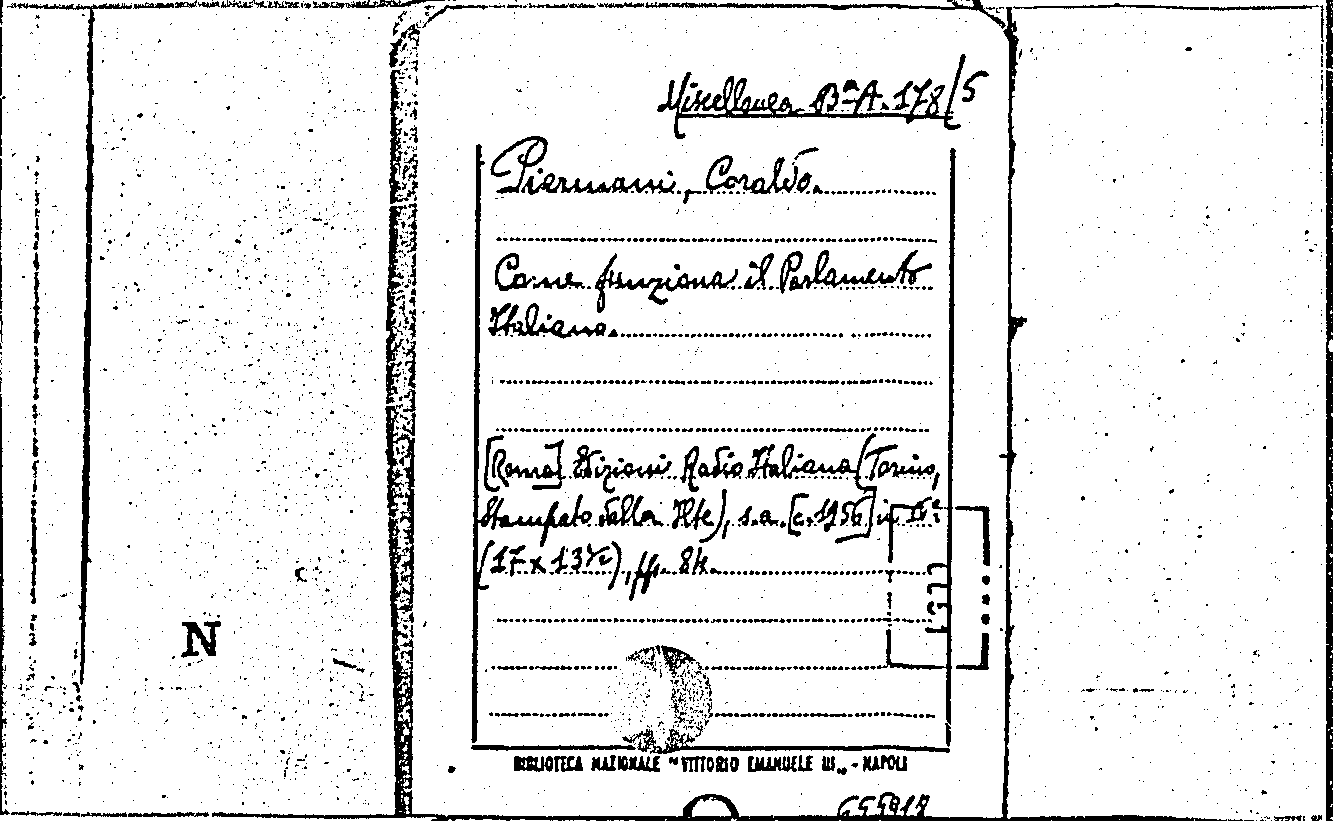 Miscellanea Bª A. 178/5
Piermani, Coraldo.
Come funziona il Parlamento
Italiano.
[Roma] Edizioni Radio Italiana (Torino,
Stampato dalla Ilte), s.a. [c. 1956] in
(17 x 13½), pp. 84.
1977
N
BIBLIOTECA NAZIONALE "VITTORIO EMANUELE III„ - NAPOLI